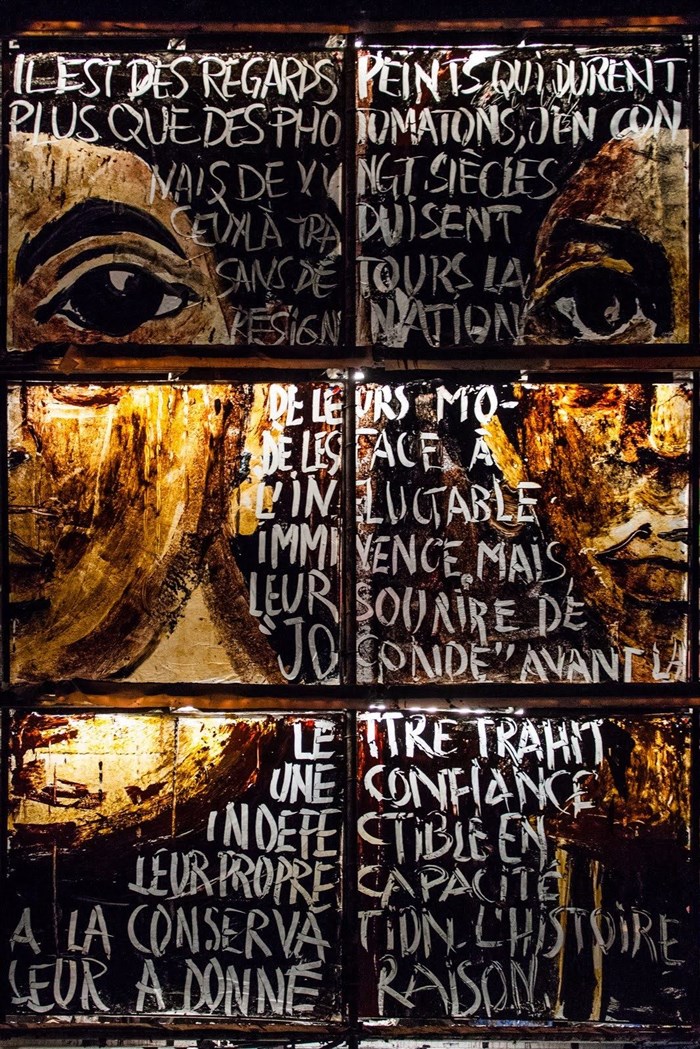 IL EST DES REGARDS PEINTS QUI DURENT
PLUS QUE DES PHOTOMATONS, J'EN CON
NAIS DE VINGT SIÈCLES
CEUX LÀ TRADUISENT
SANS DÉTOURS LA
RÉSIGNATION
DE LEURS MO-
DELES FACE À
L'INELUCTABLE
IMMINENCE, MAIS,
LEUR SOURIRE DE
"JOCONDE" AVANT LA
LETTRE TRAHIT
UNE CONFIANCE
INDEFECTIBLE EN
LEUR PROPRE CAPACITÉ
A LA CONSERVATION. L'HISTOIRE
LEUR A DONNÉ RAISON.